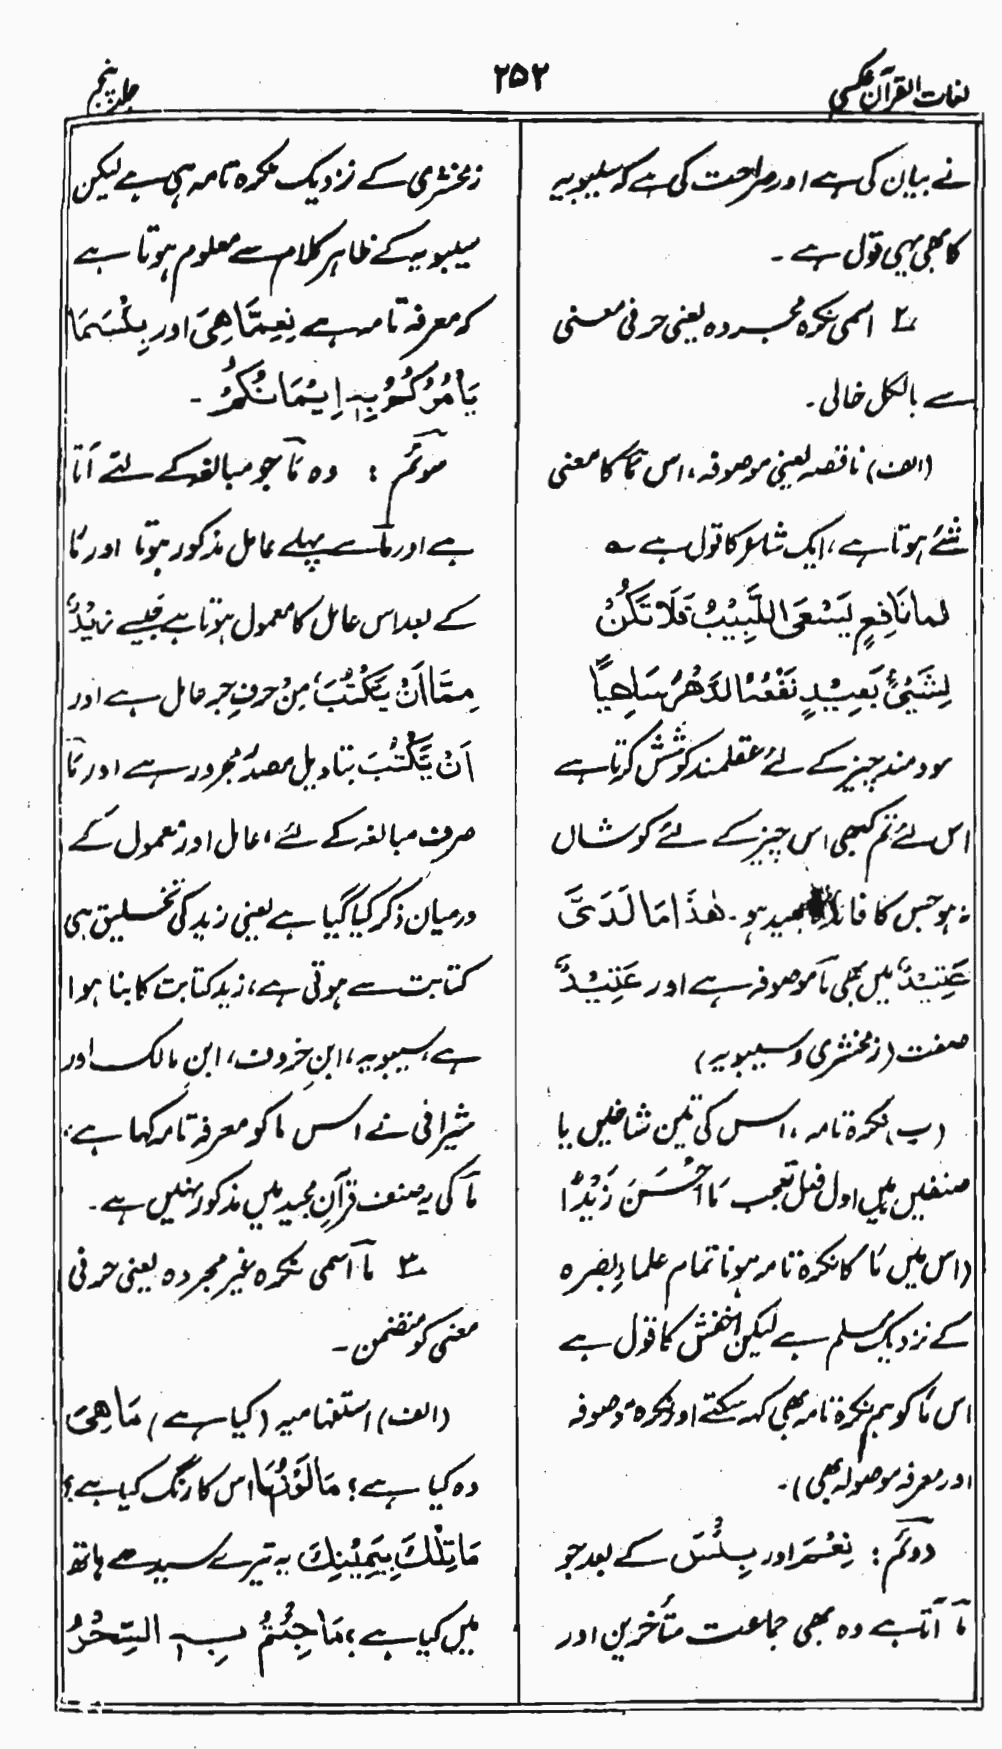 لغات القرآن عکسی
۲۵۲
جلد پنجم
نے بیان کی ہے اور صراحت کی ہے کہ سیبویہ
کا بھی یہی قول ہے ۔
۲ اسمی نکرہ مجردہ یعنی حرفی معنی
سے بالکل خالی ۔
(الف) ناقصہ یعنی موصوفہ، اس مَا کا معنی
شَئٌ ہوتا ہے، ایک شاعر کا قول ہے ؎
لما نَافِعٍ یَسْعَی اللَّبِیْبُ فَلَا تَکُنْ
لِشَیْئٍ بَعِیْدٍ نَفْعُهُ الدَّهْرُ سَاعِیاً
سود مند چیز کے لئے عقلمند کوشش کرتا ہے
اس لئے تم کبھی اس چیز کے لئے کوشاں
نہ ہو جس کا فائدہ بعید ہو ۔ هٰذَا مَا لَدَیَّ
عَتِیْدٌ میں بھی مَا موصوفہ ہے اور عَتِیْدٌ
صفت (زمخشری و سیبویہ)
(ب) نکرہ تامہ، اس کی تین شاخیں یا
صنفیں ہیں اول فعل تعجب مَا اَحْسَنَ زَیْدًا
(اس میں مَا کا نکرہ تامہ ہونا تمام علماءِ بصرہ
کے نزدیک مسلم ہے لیکن اخفش کا قول ہے
اس مَا کو ہم نکرہ تامہ بھی کہہ سکتے اور نکرہ موصوفہ
اور معرفہ موصولہ بھی) ۔
دوئم : نِعْمَ اور بِئْسَ کے بعد جو
مَا آتا ہے وہ بھی جماعت متأخرین اور
زمخشری کے نزدیک نکرہ تامہ ہی ہے لیکن
سیبویہ کے ظاہر کلام سے معلوم ہوتا ہے
کہ معرفہ تامہ ہے نِعِمَّا هِیَ اور بِئْسَمَا
یَأْمُرُکُمْ بِهٖ اِیْمَانُکُمْ ۔
سوئم : وہ مَا جو مبالغہ کے لئے آتا
ہے اور مَا سے پہلے عامل مذکور ہوتا اور مَا
کے بعد اس عامل کا معمول ہوتا ہے جیسے زَیْدٌ
مِمَّا اَنْ یَکْتُبَ، مِنْ حرفِ جر عامل ہے اور
اَنْ یَّکْتُبَ بتاویل مصدر مجرور ہے اور مَا
صرف مبالغہ کے لئے، عامل اور معمول کے
درمیان ذکر کیا گیا ہے یعنی زید کی تخلیق ہی
کتابت سے ہوتی ہے، زید کتابت کا بنا ہوا
ہے، سیبویہ، ابنِ خروف، ابنِ مالک اور
شیرافی نے اس ما کو معرفہ تامہ کہا ہے،
مَا کی یہ صنف قرآنِ مجید میں مذکور نہیں ہے ۔
۳ مَا اسمی نکرہ غیر مجردہ یعنی حرفی
معنی کو متضمن ۔
(الف) استفہامیہ (کیا ہے) مَا هِیَ
وہ کیا ہے؟ مَا لَوْنُهَا اس کا رنگ کیا ہے؟
مَا تِلْکَ بِیَمِیْنِكَ یہ تیرے سیدھے ہاتھ
میں کیا ہے، مَا جِئْتُمْ بِهِ السِّحْرُ